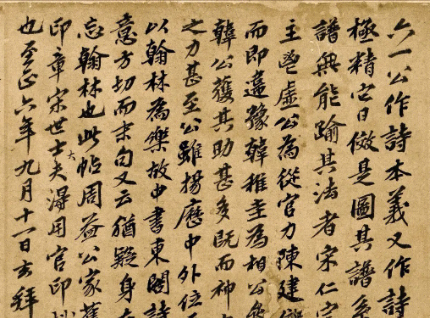 六一公作詩本義又作詩
極精它日倣是圖其譜系
譜無能踰其法者宋仁宗
主鬯虛公為從官力陳建儲
而即違豫韓稚圭為相公
韓公獲其助甚多既而神
之力甚至公雖揚歷中外位
以翰林為樂故中書東閣詩
意方切而末句又云猶疑身在
忘翰林也此帖周益公家舊
印章宋世士大夫得用官印
也至正六年九月十一日玄拜